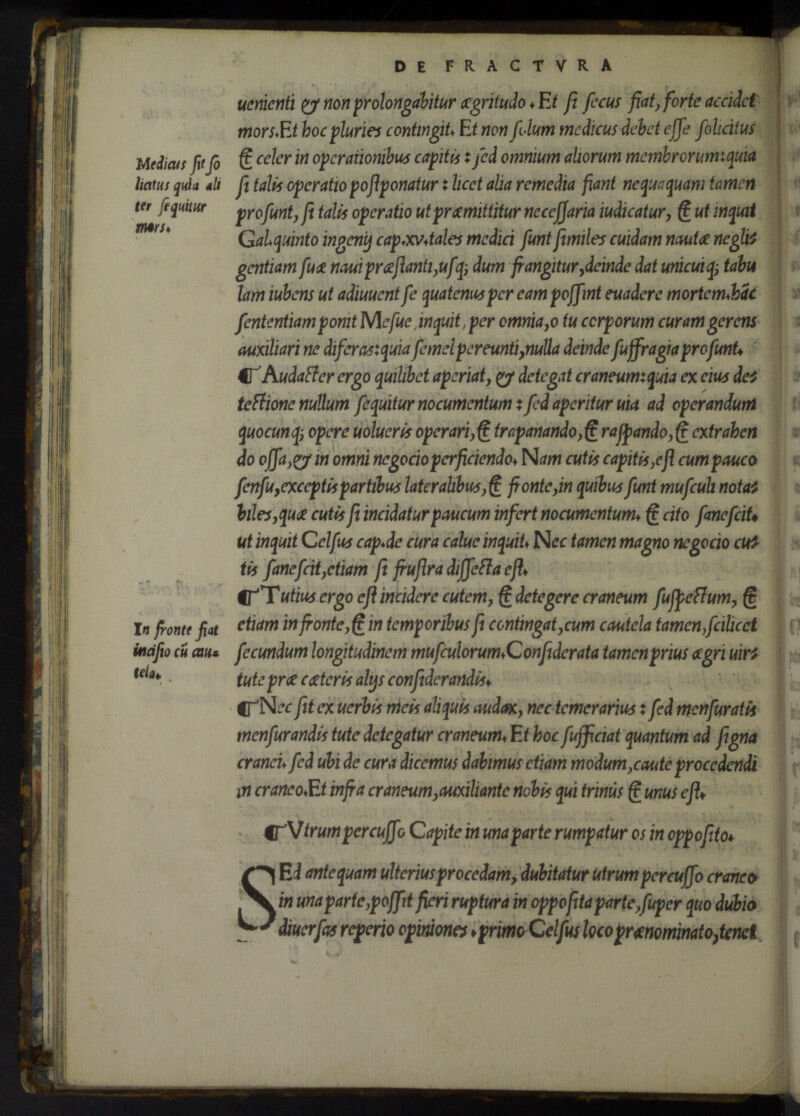 DE FRACTVRA
uenienti & non prolongabitur ægritudo. Et ſi ſecus fiat, forte accidet
mors. Et hoc pluries contingit. Et non ſolum medicus debet eſſe ſolicitus
& celer in operationibus capitis: ſed omnium aliorum membrorum: quia
ſi talis operatio poſtponatur: licet alia remedia fiant nequaquam tamen
proſunt, ſi talis operatio ut præmittitur neceſſaria iudicatur, & ut inquit
Gal. quinto ingenij cap. xv. tales medici ſunt ſimiles cuidam nautæ negli=
gentiam ſuæ naui præſtanti, uſq; dum frangitur, deinde dat unicuiq; tabu
lam iubens ut adiuuent ſe quatenus per eam poſſint euadere mortem. hāc
ſententiam ponit Meſue, inquit, per omnia, o tu corporum curam gerens
auxiliari ne diferas: quia ſemel pereunti, nulla deinde ſuffragia proſunt.
¶ Audacter ergo quilibet aperiat, & detegat craneum: quia ex eius de=
tectione nullum ſequitur nocumentum: ſed aperitur uia ad operandum
quocunq; opere uolueris operari, & trapanando, & raſpando, & extrahen
do oſſa, & in omni negocio perficiendo. Nam cutis capitis, eſt cum pauco
ſenſu, exceptis partibus lateralibus, & fronte, in quibus ſunt muſculi nota=
biles, quæ cutis ſi incidatur paucum infert nocumentum. & cito ſaneſcit.
ut inquit Celſus cap. de cura calue inquit. Nec tamen magno negocio cu=
tis ſaneſcit, etiam ſi fruſtra diſſecta eſt.
¶ Tutius ergo eſt incidere cutem, & detegere craneum ſuſpectum, &
etiam in fronte, & in temporibus ſi contingat, cum cautela tamen, ſcilicet
ſecundum longitudinem muſculorum. Conſiderata tamen prius ægri uir=
tute præ cæteris alijs conſiderandis.
¶ Nec ſit ex uerbis meis aliquis audax, nec temerarius: ſed menſuratis
menſurandis tute detegatur craneum. Et hoc ſufficiat quantum ad ſigna
cranei. ſed ubi de cura dicemus dabimus etiam modum, caute procedendi
in craneo. Et infra craneum, auxiliante nobis qui trinus & unus eſt.
¶ Vtrum percuſſo Capite in una parte rumpatur os in oppoſito.
SEd antequam ulterius procedam, dubitatur utrum percuſſo craneo
in una parte, poſſit fieri ruptura in oppoſita parte, ſuper quo dubio
diuerſas reperio opiniones. primo Celſus loco prænominato, tenet
Medicus ſit ſo
licitus quia ali
ter ſequitur
mors.
In fronte fiat
inciſio cū cau=
tela.